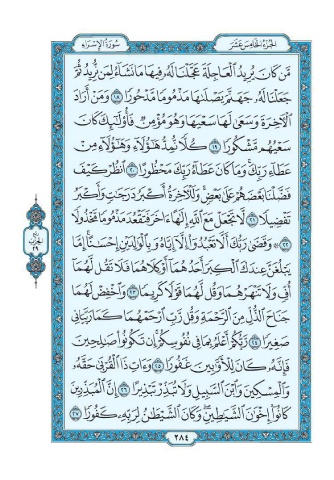 الجزء الخامس عشر
سورة الإسراء
مَّن كَانَ يُرِيدُ ٱلْعَاجِلَةَ عَجَّلْنَا لَهُۥ فِيهَا مَا نَشَآءُ لِمَن نُّرِيدُ ثُمَّ
جَعَلْنَا لَهُۥ جَهَنَّمَ يَصْلَىٰهَا مَذْمُومًا مَّدْحُورًا ١٨ وَمَنْ أَرَادَ
ٱلْءَاخِرَةَ وَسَعَىٰ لَهَا سَعْيَهَا وَهُوَ مُؤْمِنٌ فَأُو۟لَٰٓئِكَ كَانَ
سَعْيُهُم مَّشْكُورًا ١٩ كُلًّا نُّمِدُّ هَٰٓؤُلَآءِ وَهَٰٓؤُلَآءِ مِنْ
عَطَآءِ رَبِّكَ وَمَا كَانَ عَطَآءُ رَبِّكَ مَحْظُورًا ٢٠ ٱنظُرْ كَيْفَ
فَضَّلْنَا بَعْضَهُمْ عَلَىٰ بَعْضٍ وَلَلْءَاخِرَةُ أَكْبَرُ دَرَجَٰتٍ وَأَكْبَرُ
تَفْضِيلًا ٢١ لَّا تَجْعَلْ مَعَ ٱللَّهِ إِلَٰهًا ءَاخَرَ فَتَقْعُدَ مَذْمُومًا مَّخْذُولًا
٢٢ وَقَضَىٰ رَبُّكَ أَلَّا تَعْبُدُوٓا۟ إِلَّآ إِيَّاهُ وَبِٱلْوَٰلِدَيْنِ إِحْسَٰنًا إِمَّا
يَبْلُغَنَّ عِندَكَ ٱلْكِبَرَ أَحَدُهُمَآ أَوْ كِلَاهُمَا فَلَا تَقُل لَّهُمَآ
أُفٍّ وَلَا تَنْهَرْهُمَا وَقُل لَّهُمَا قَوْلًا كَرِيمًا ٢٣ وَٱخْفِضْ لَهُمَا
جَنَاحَ ٱلذُّلِّ مِنَ ٱلرَّحْمَةِ وَقُل رَّبِّ ٱرْحَمْهُمَا كَمَا رَبَّيَانِى
صَغِيرًا ٢٤ رَّبُّكُمْ أَعْلَمُ بِمَا فِى نُفُوسِكُمْ إِن تَكُونُوا۟ صَٰلِحِينَ
فَإِنَّهُۥ كَانَ لِلْأَوَّٰبِينَ غَفُورًا ٢٥ وَءَاتِ ذَا ٱلْقُرْبَىٰ حَقَّهُۥ
وَٱلْمِسْكِينَ وَٱبْنَ ٱلسَّبِيلِ وَلَا تُبَذِّرْ تَبْذِيرًا ٢٦ إِنَّ ٱلْمُبَذِّرِينَ
كَانُوٓا۟ إِخْوَٰنَ ٱلشَّيَٰطِينِ وَكَانَ ٱلشَّيْطَٰنُ لِرَبِّهِۦ كَفُورًا ٢٧
٢٨٤